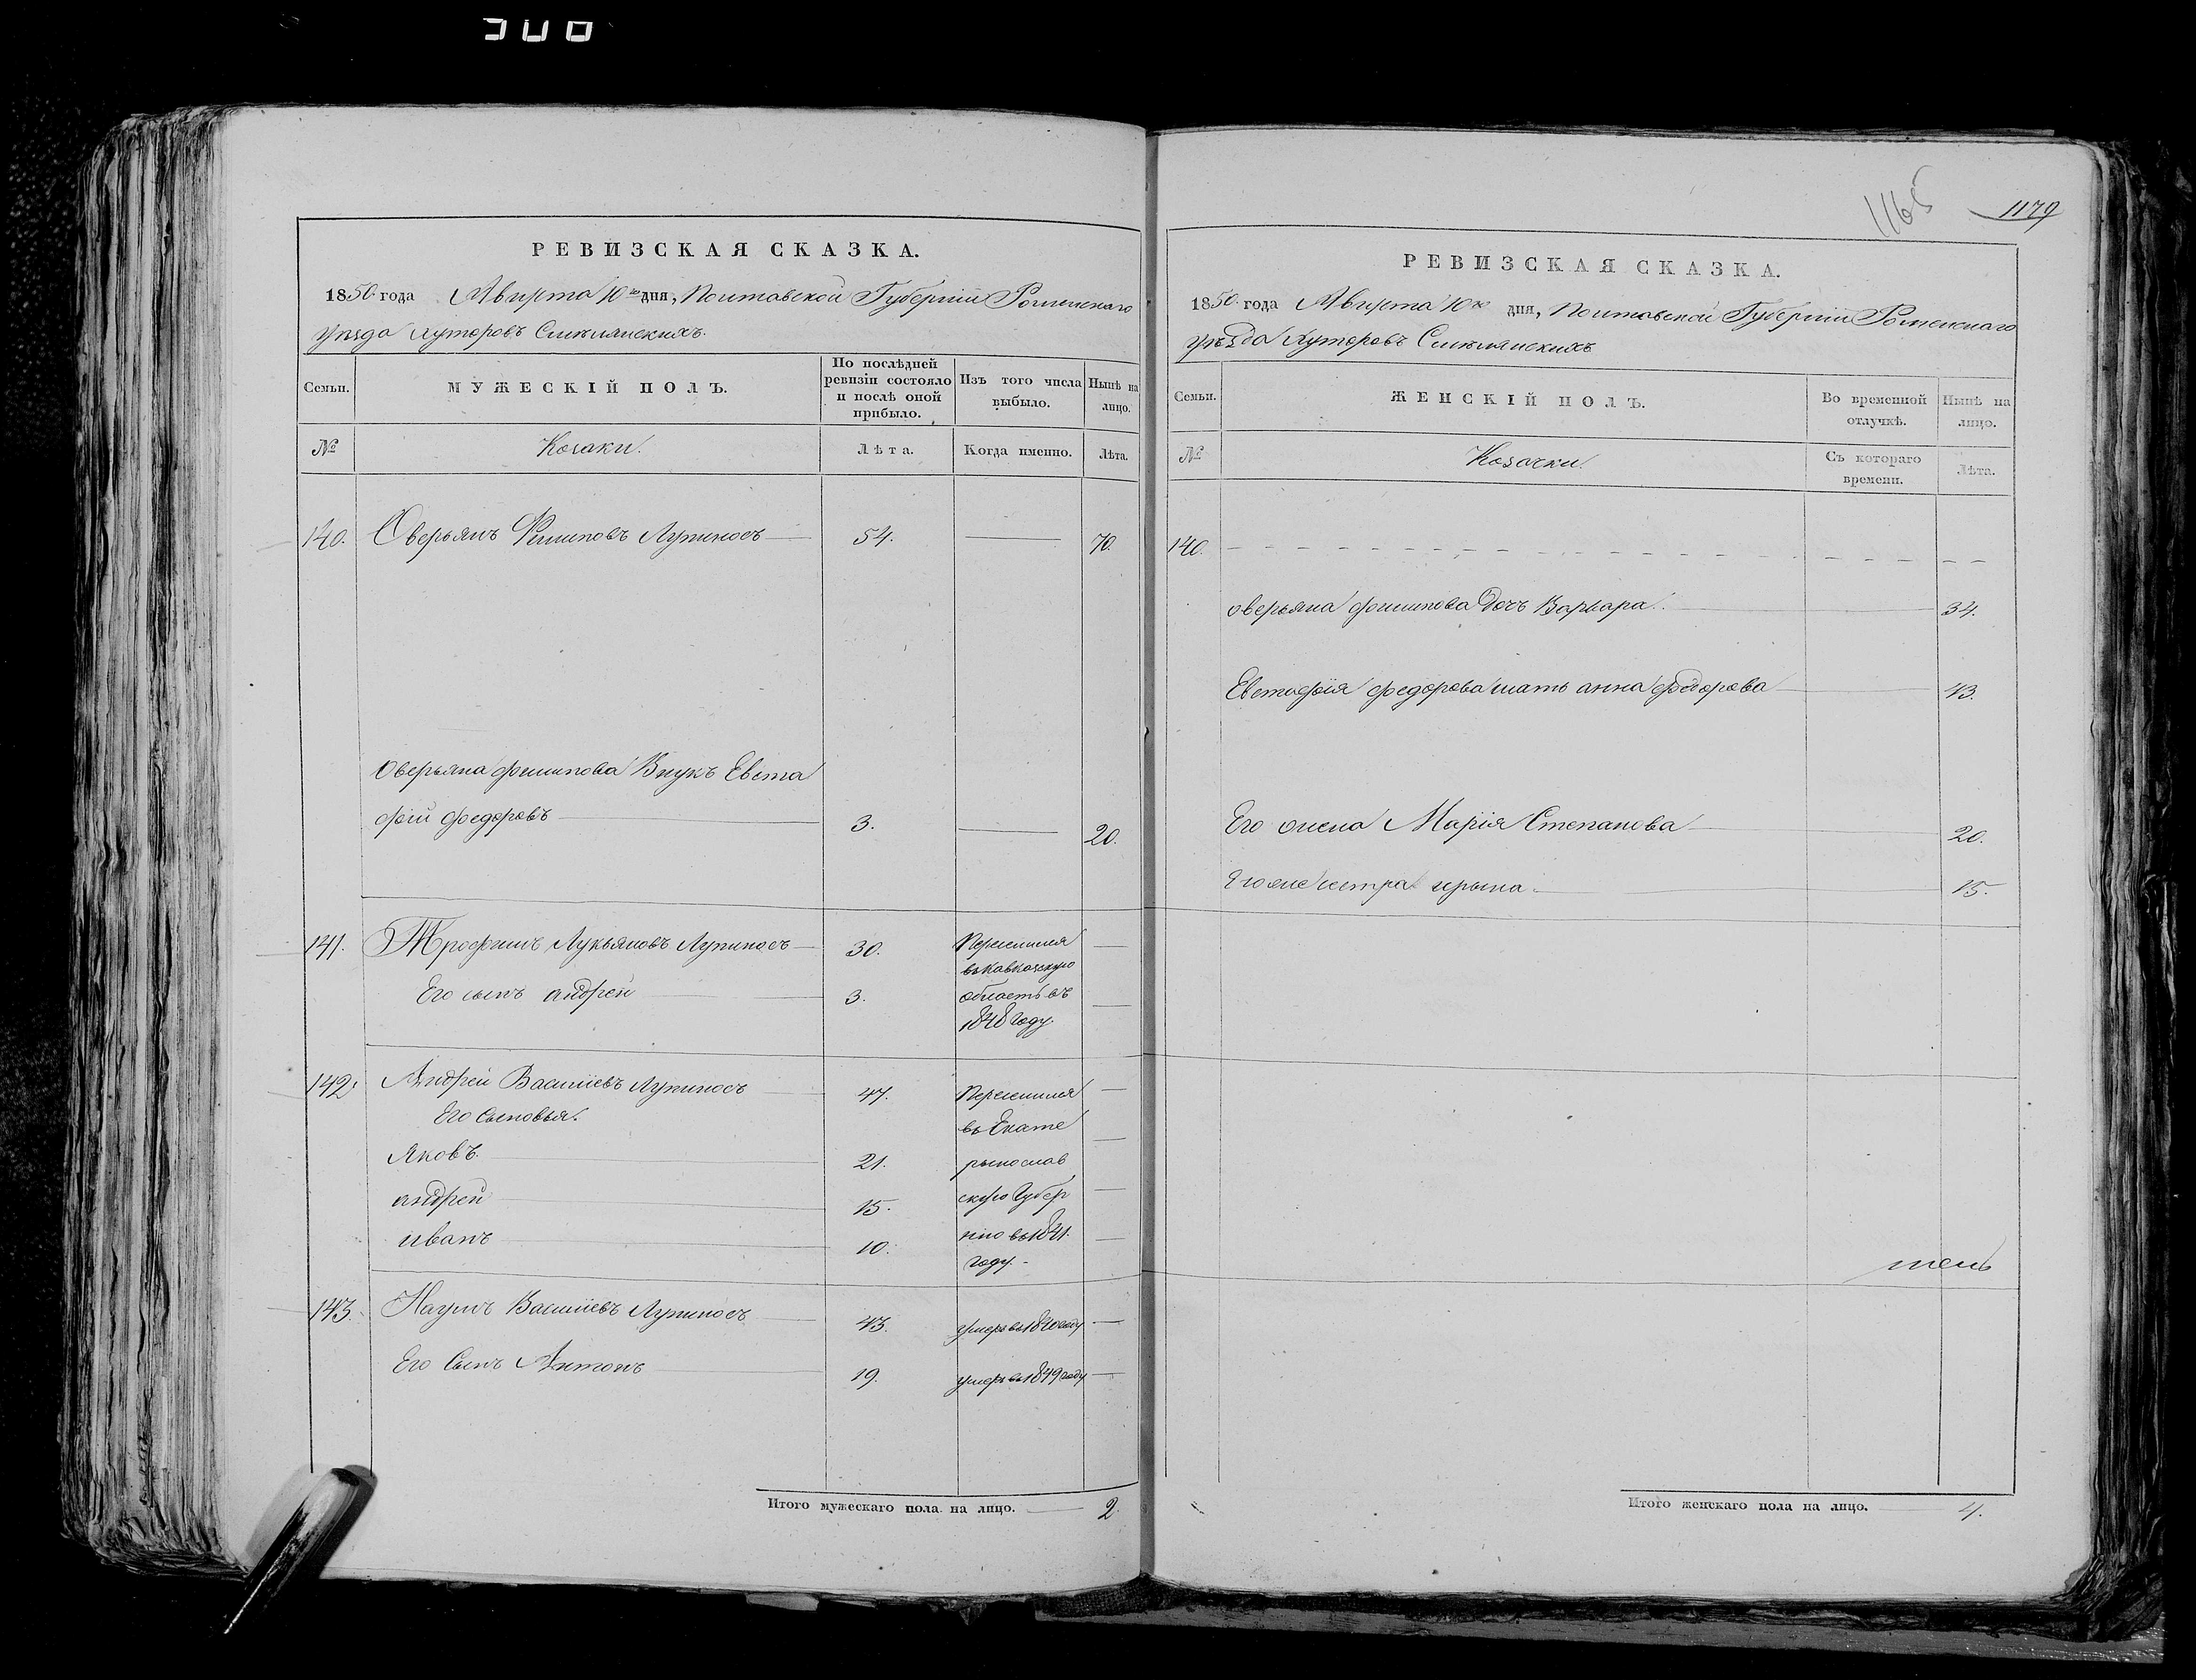 1165
1179
РЕВИЗСКАЯ СКАЗКА.
1850 года Августа 10го дня, Полтавской Губерніи Роменскаго
уѣзда хуторовъ Смѣлянскихъ.
Семьи.
МУЖЕСКІЙ ПОЛЪ.
По послѣдней ревизіи состояло и послѣ оной прибыло.
Изъ того числа выбыло.
Нынѣ на лицо.
№
Козаки.
Лѣта.
Когда именно.
Лѣта.
140. Оверьянъ Филиповъ Лупиносъ 54. 70.
Оверьяна филипова Внукъ Евста
фій федоровъ 3. 20.
141. Трофимъ Лукьяновъ Лупиносъ 30. Переселился
въ Кавказскую
Его сынъ андрей 3. область въ
1848 году.
142. Андрей Василіевъ Лупиносъ 47. Переселился
Его Сыновья. въ Екате
Яковъ. 21. рынослав
андрей 15. скую Губер
иванъ 10. нію въ 1841.
году.
143. Наумъ Василіевъ Лупиносъ 43. умеръ въ 1840 году
Его Сынъ Антонъ 19. умеръ въ 1849 году
Итого мужескаго пола на лицо. 2.
РЕВИЗСКАЯ СКАЗКА.
1850 года Августа 10го дня, Полтавской Губерніи Роменскаго
уѣзда Хуторовъ Смѣлянскихъ
Семьи.
ЖЕНСКІЙ ПОЛЪ.
Во временной отлучкѣ.
Нынѣ на лицо.
№
Козачки.
Съ котораго времени.
Лѣта.
140.
оверьяна филипова Дочь Варвара. 34.
Евстафія федорова мать анна федорова 43.
Его жена Марія Степанова 20.
Его же сестра ирына. 15.
Итого женскаго пола на лицо. 4.